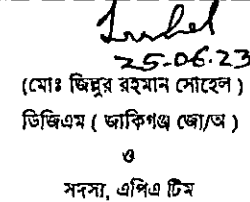 25-06-23
(মোঃ জিল্লুর রহমান সোহেল)
ডিজিএম ( জকিগঞ্জ জো/অ )
ও
সদস্য, এপিএ টিম